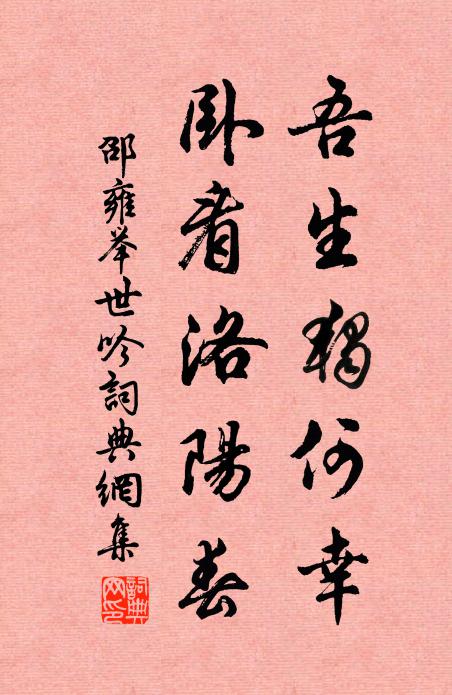 吾生獨何幸
臥看洛陽春
邵雍举世吟詞典網集
詞典網印